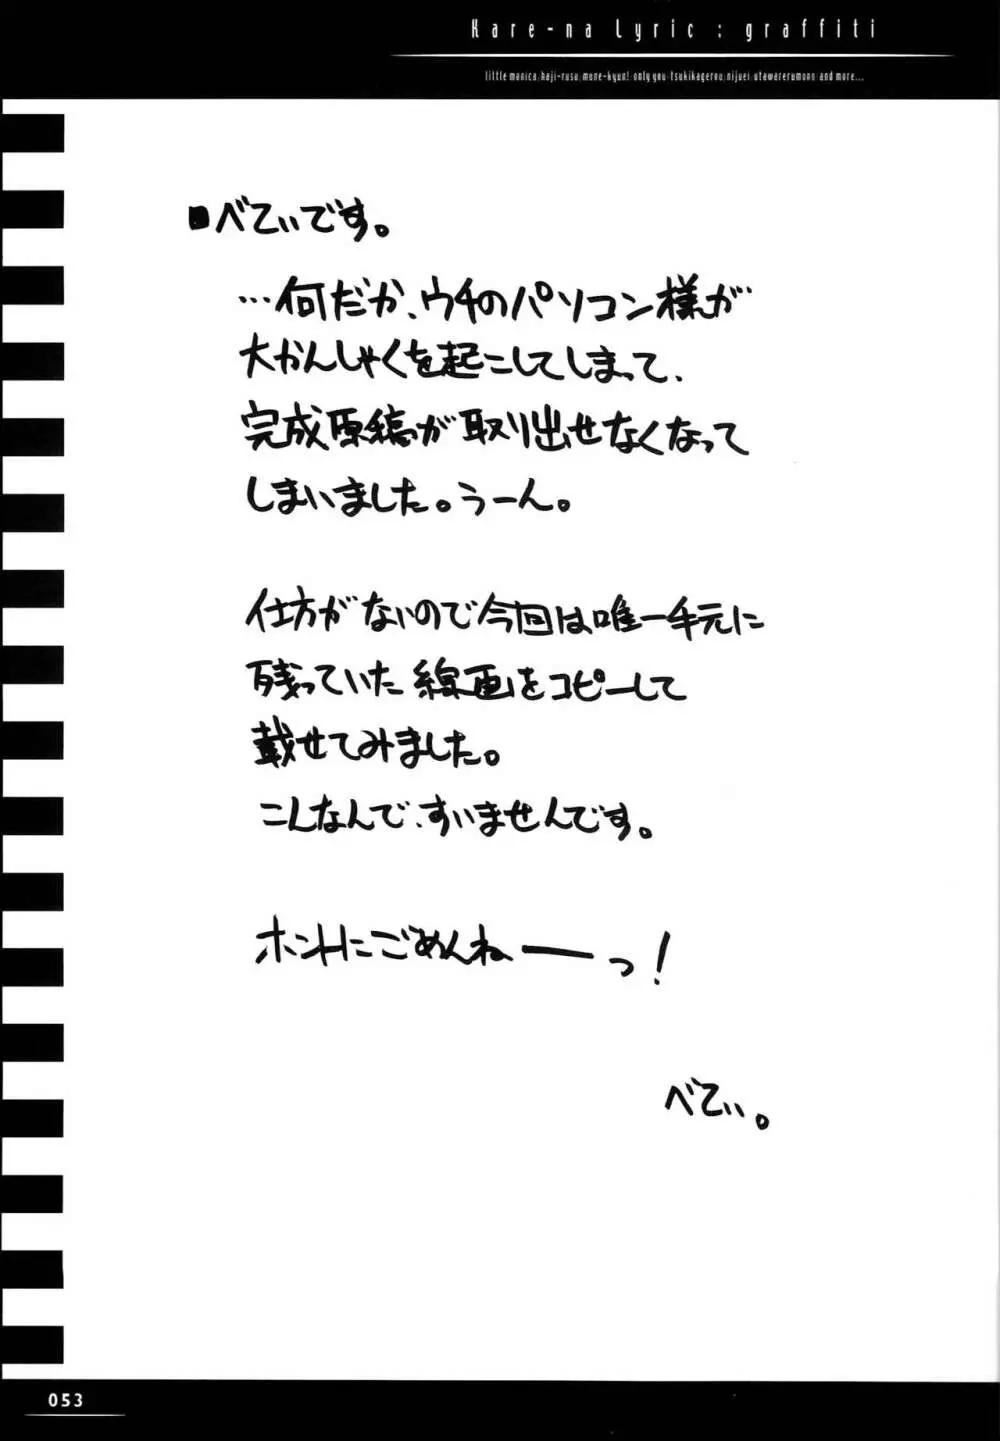 Kare-na Lyric : graffiti
little monica/haji-rusu/mune-kyun! only you/tsukikagerou/nijuei/utawarerumono and more...
■べてぃです。
…何だか、ウチのパソコン様が
大かんしゃくを起こしてしまって、
完成原稿が取り出せなくなって
しまいました。うーん。
仕方がないので今回は唯一手元に
残っていた線画をコピーして
載せてみました。
こんなんで、すいませんです。
ホントにごめんねーーっ!
べてぃ。
053